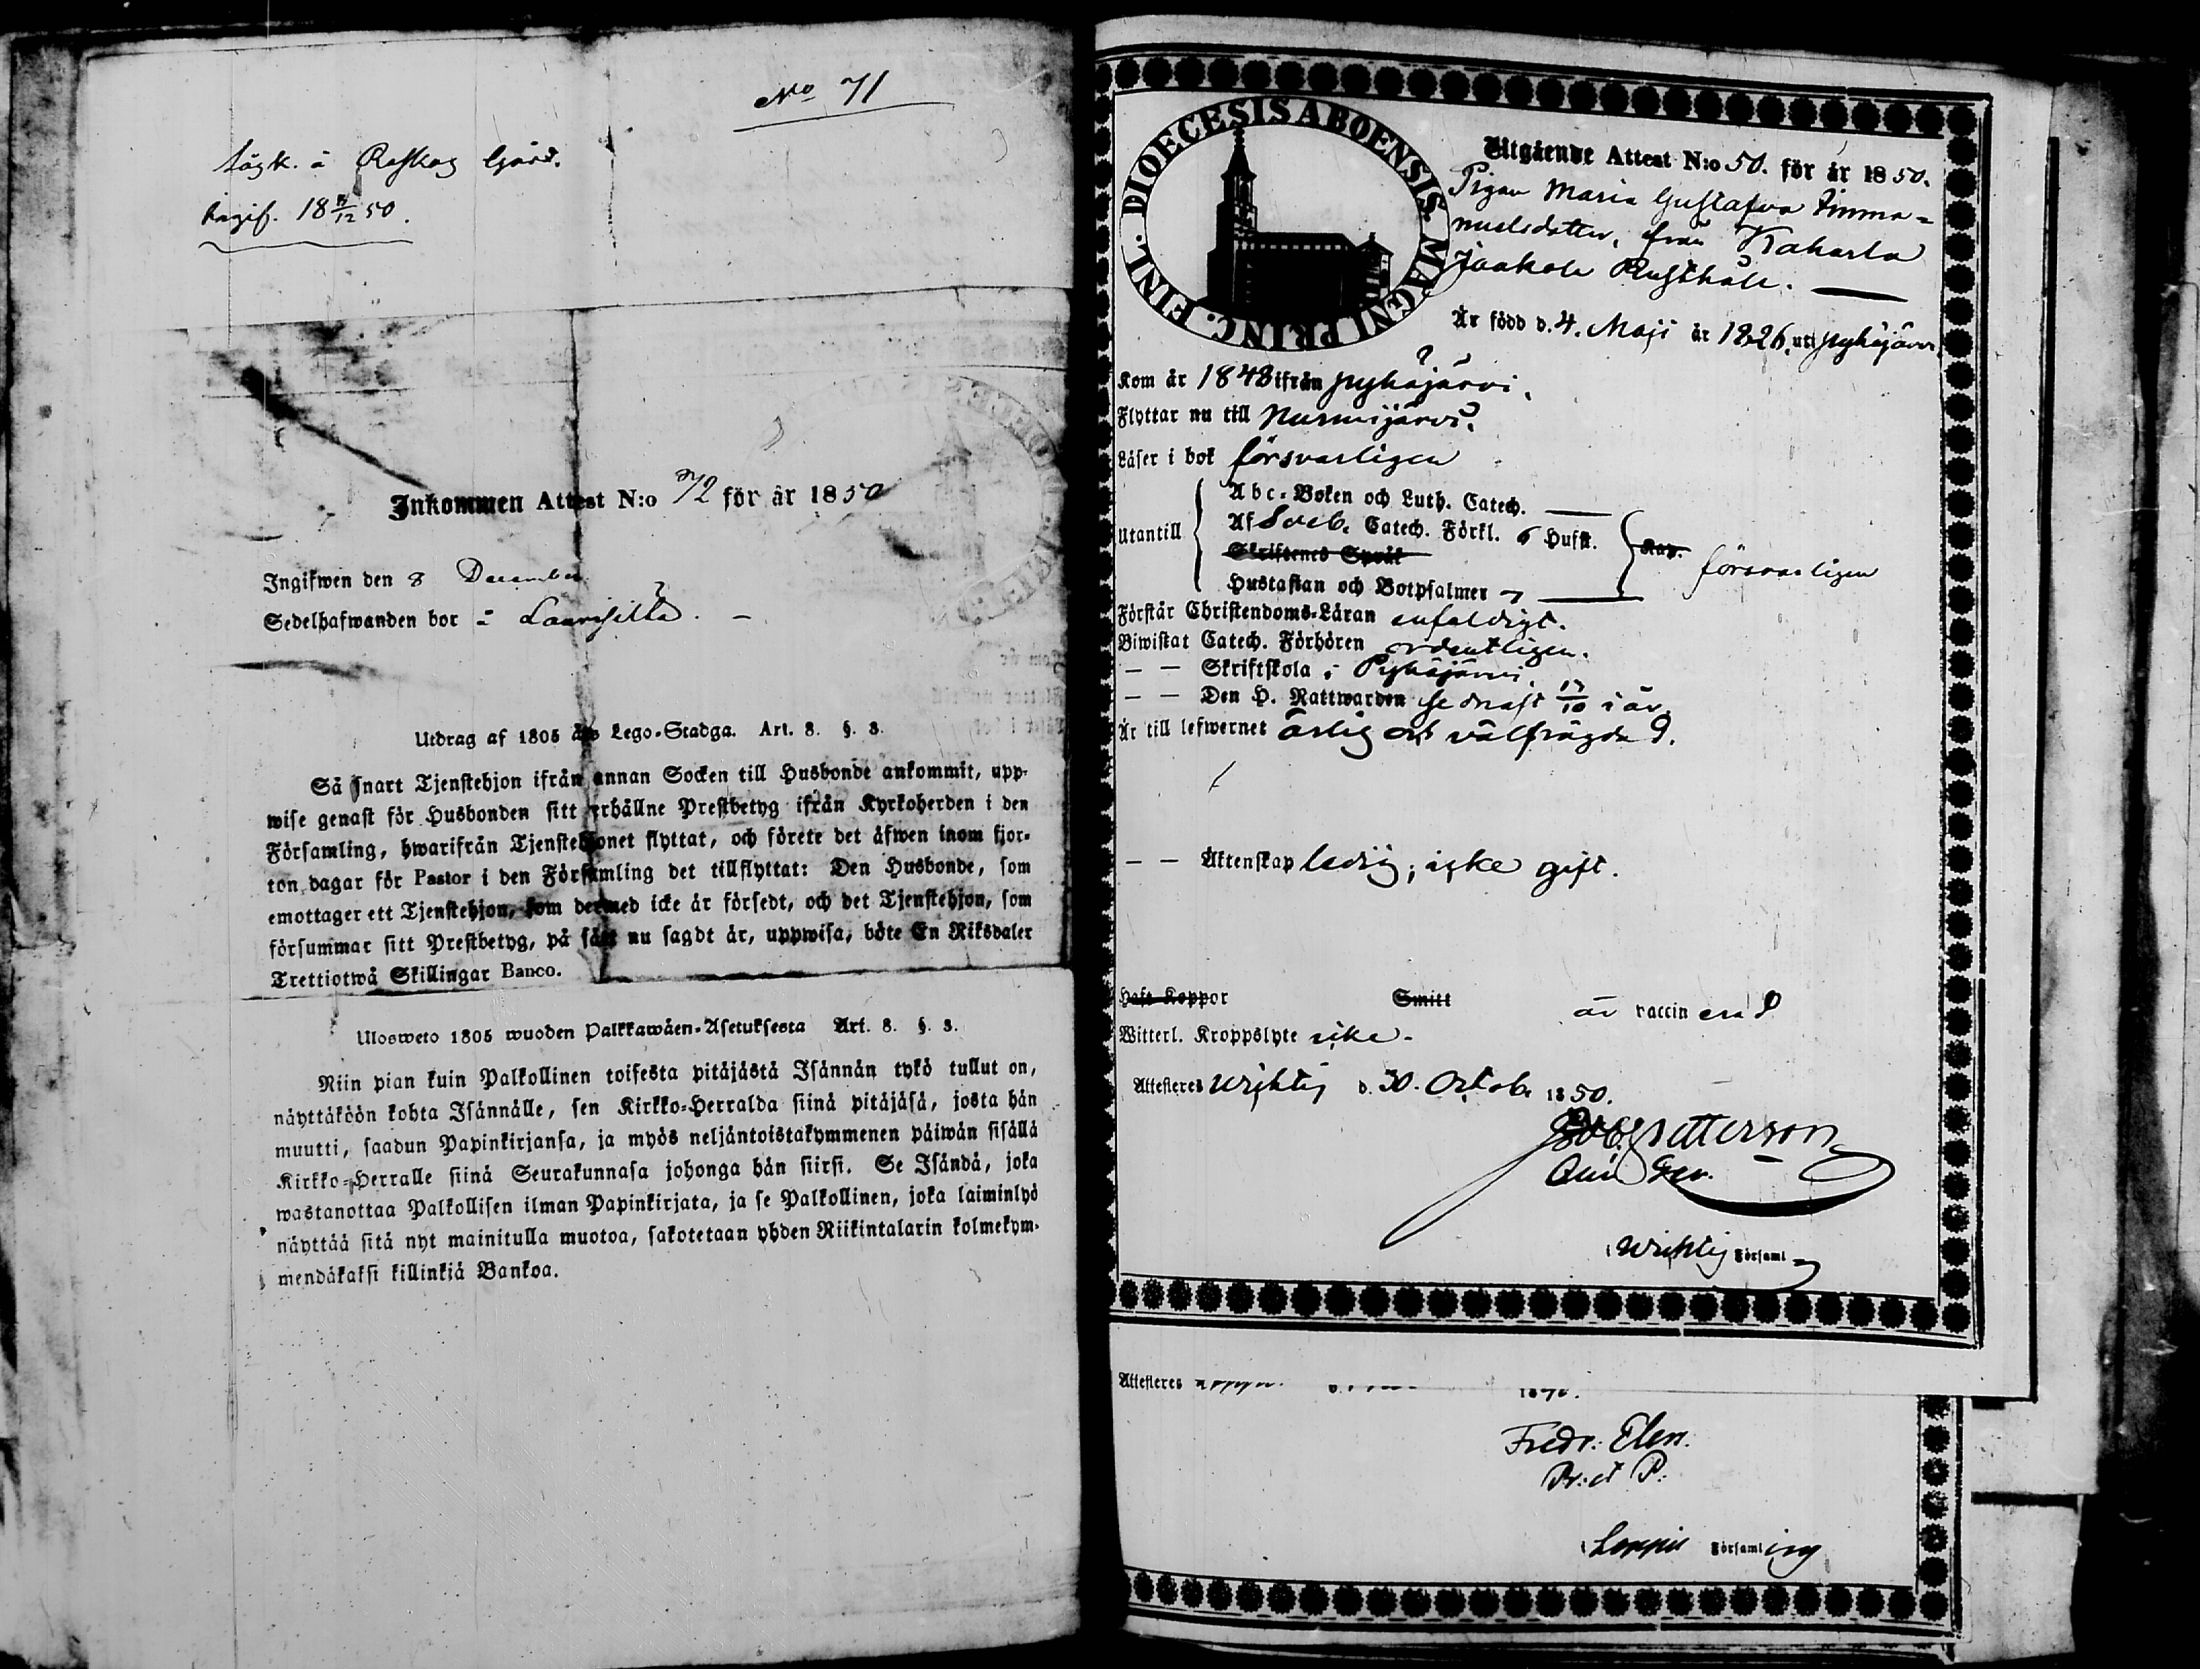 No 71
Roskog Gård.
Ingif. 18 /12 50.
Inkommen Attest N:o 72 för år 1850
Ingifwen den 8 December
Sedelhafwanden bor i Laurisilta. –
Utdrag af 1805 års Lego-Stadga. Art. 8. §. 3.
Så snart Tjenstehjon ifrån annan Socken till Husbonde ankommit, upp-
wise genast för Husbonden sitt erhållne Prestbetyg ifrån Kyrkoherden i den
Församling, hwarifrån Tjenstehjonet flyttat, och förete det äfwen inom fjor-
ton dagar för Pastor i den Församling det tillflyttat: Den Husbonde, som
emottager ett Tjenstehjon, som dermed icke är försedt, och det Tjenstehjon, som
försummar sitt Prestbetyg, på sätt nu sagdt är, uppwisa, böte En Riksdaler
Trettiotwå Skillingar Banco.
Ulosweto 1805 wuoden Palkkawäen-Asetuksesta Art. 8. §. 3.
Niin pian kuin Palkollinen toisesta pitäjästä Isännän tykö tullut on,
näyttäköön kohta Isännälle, sen Kirkko-Herralda siinä pitäjäsä, josta hän
muutti, saadun Papinkirjansa, ja myös neljäntoistakymmenen päiwän sisällä
Kirkko-Herralle siinä Seurakunnasa johonga hän siirsi. Se Isändä, joka
wastanottaa Palkollisen ilman Papinkirjata, ja se Palkollinen, joka laiminlyö
näyttää sitä nyt mainitulla muotoa, sakotetaan yhden Riikintalarin kolmekym-
mendäkaksi killinkiä Bankoa.
DIOECESIS ABOENSIS. MAGNI PRINC. FINL.
Utgående Attest N:o 50. för år 1850.
Pigan Maria Gustafva Imma-
nuelsdotter, från Kaharla
Jaakola Rusthåll. —
Är född d. 4. Maji år 1826. uti Pyhäjärvi.
Kom år 1848 ifrån Pyhäjärvi.
Flyttar nu till Nurmijärvi.
Läser i bok försvarligen
Utantill
Abc-Boken och Luth. Catech. —
Af Sveb. Catech. Förkl. 6 Hufst.
Skriftenes Språk
Hustaflan och Botpsalmer 7 —
Kap. försvarligen
Förstår Christendoms-Läran enfaldigt.
Biwistat Catech. Förhören ordentligen.
— — Skriftskola i Pyhäjärvi.
— — Den H. Nattwarden senast 17/10 i år.
Är till lefwernet ärlig och välfrägdad.
— — Äktenskap ledig; icke gift.
Haft Koppor Smitt är vaccinerad
Witterl. Kroppslyte icke.
Attesteres Wichtis d. 30. Octob. 1850.
i Wichtis Församl
Attesteres
Fredr. Elen.
Pr. et P.
i Loppis Församling